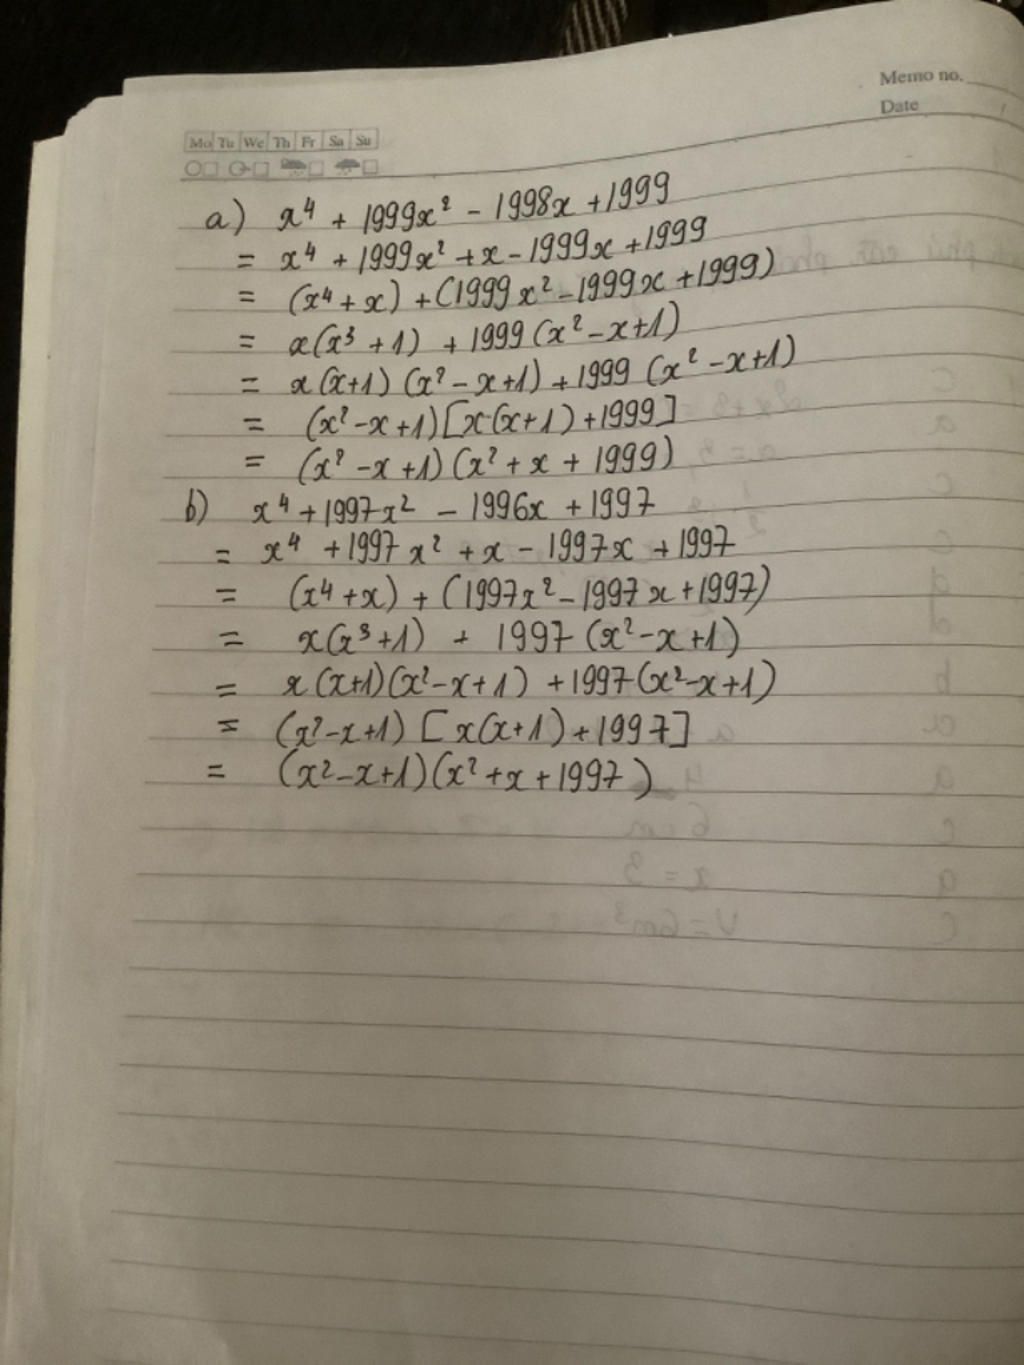 Memo no.
Date
Mo Tu We Th Fr Sa Su
a) x⁴ + 1999x² - 1998x + 1999
= x⁴ + 1999x² + x - 1999x + 1999
= (x⁴ + x) + (1999x² - 1999x + 1999)
= x(x³ + 1) + 1999(x² - x + 1)
= x(x+1)(x² - x + 1) + 1999(x² - x + 1)
= (x² - x + 1)[x(x+1) + 1999]
= (x² - x + 1)(x² + x + 1999)
b) x⁴ + 1997x² - 1996x + 1997
= x⁴ + 1997x² + x - 1997x + 1997
= (x⁴ + x) + (1997x² - 1997x + 1997)
= x(x³ + 1) + 1997(x² - x + 1)
= x(x+1)(x² - x + 1) + 1997(x² - x + 1)
= (x² - x + 1)[x(x+1) + 1997]
= (x² - x + 1)(x² + x + 1997)